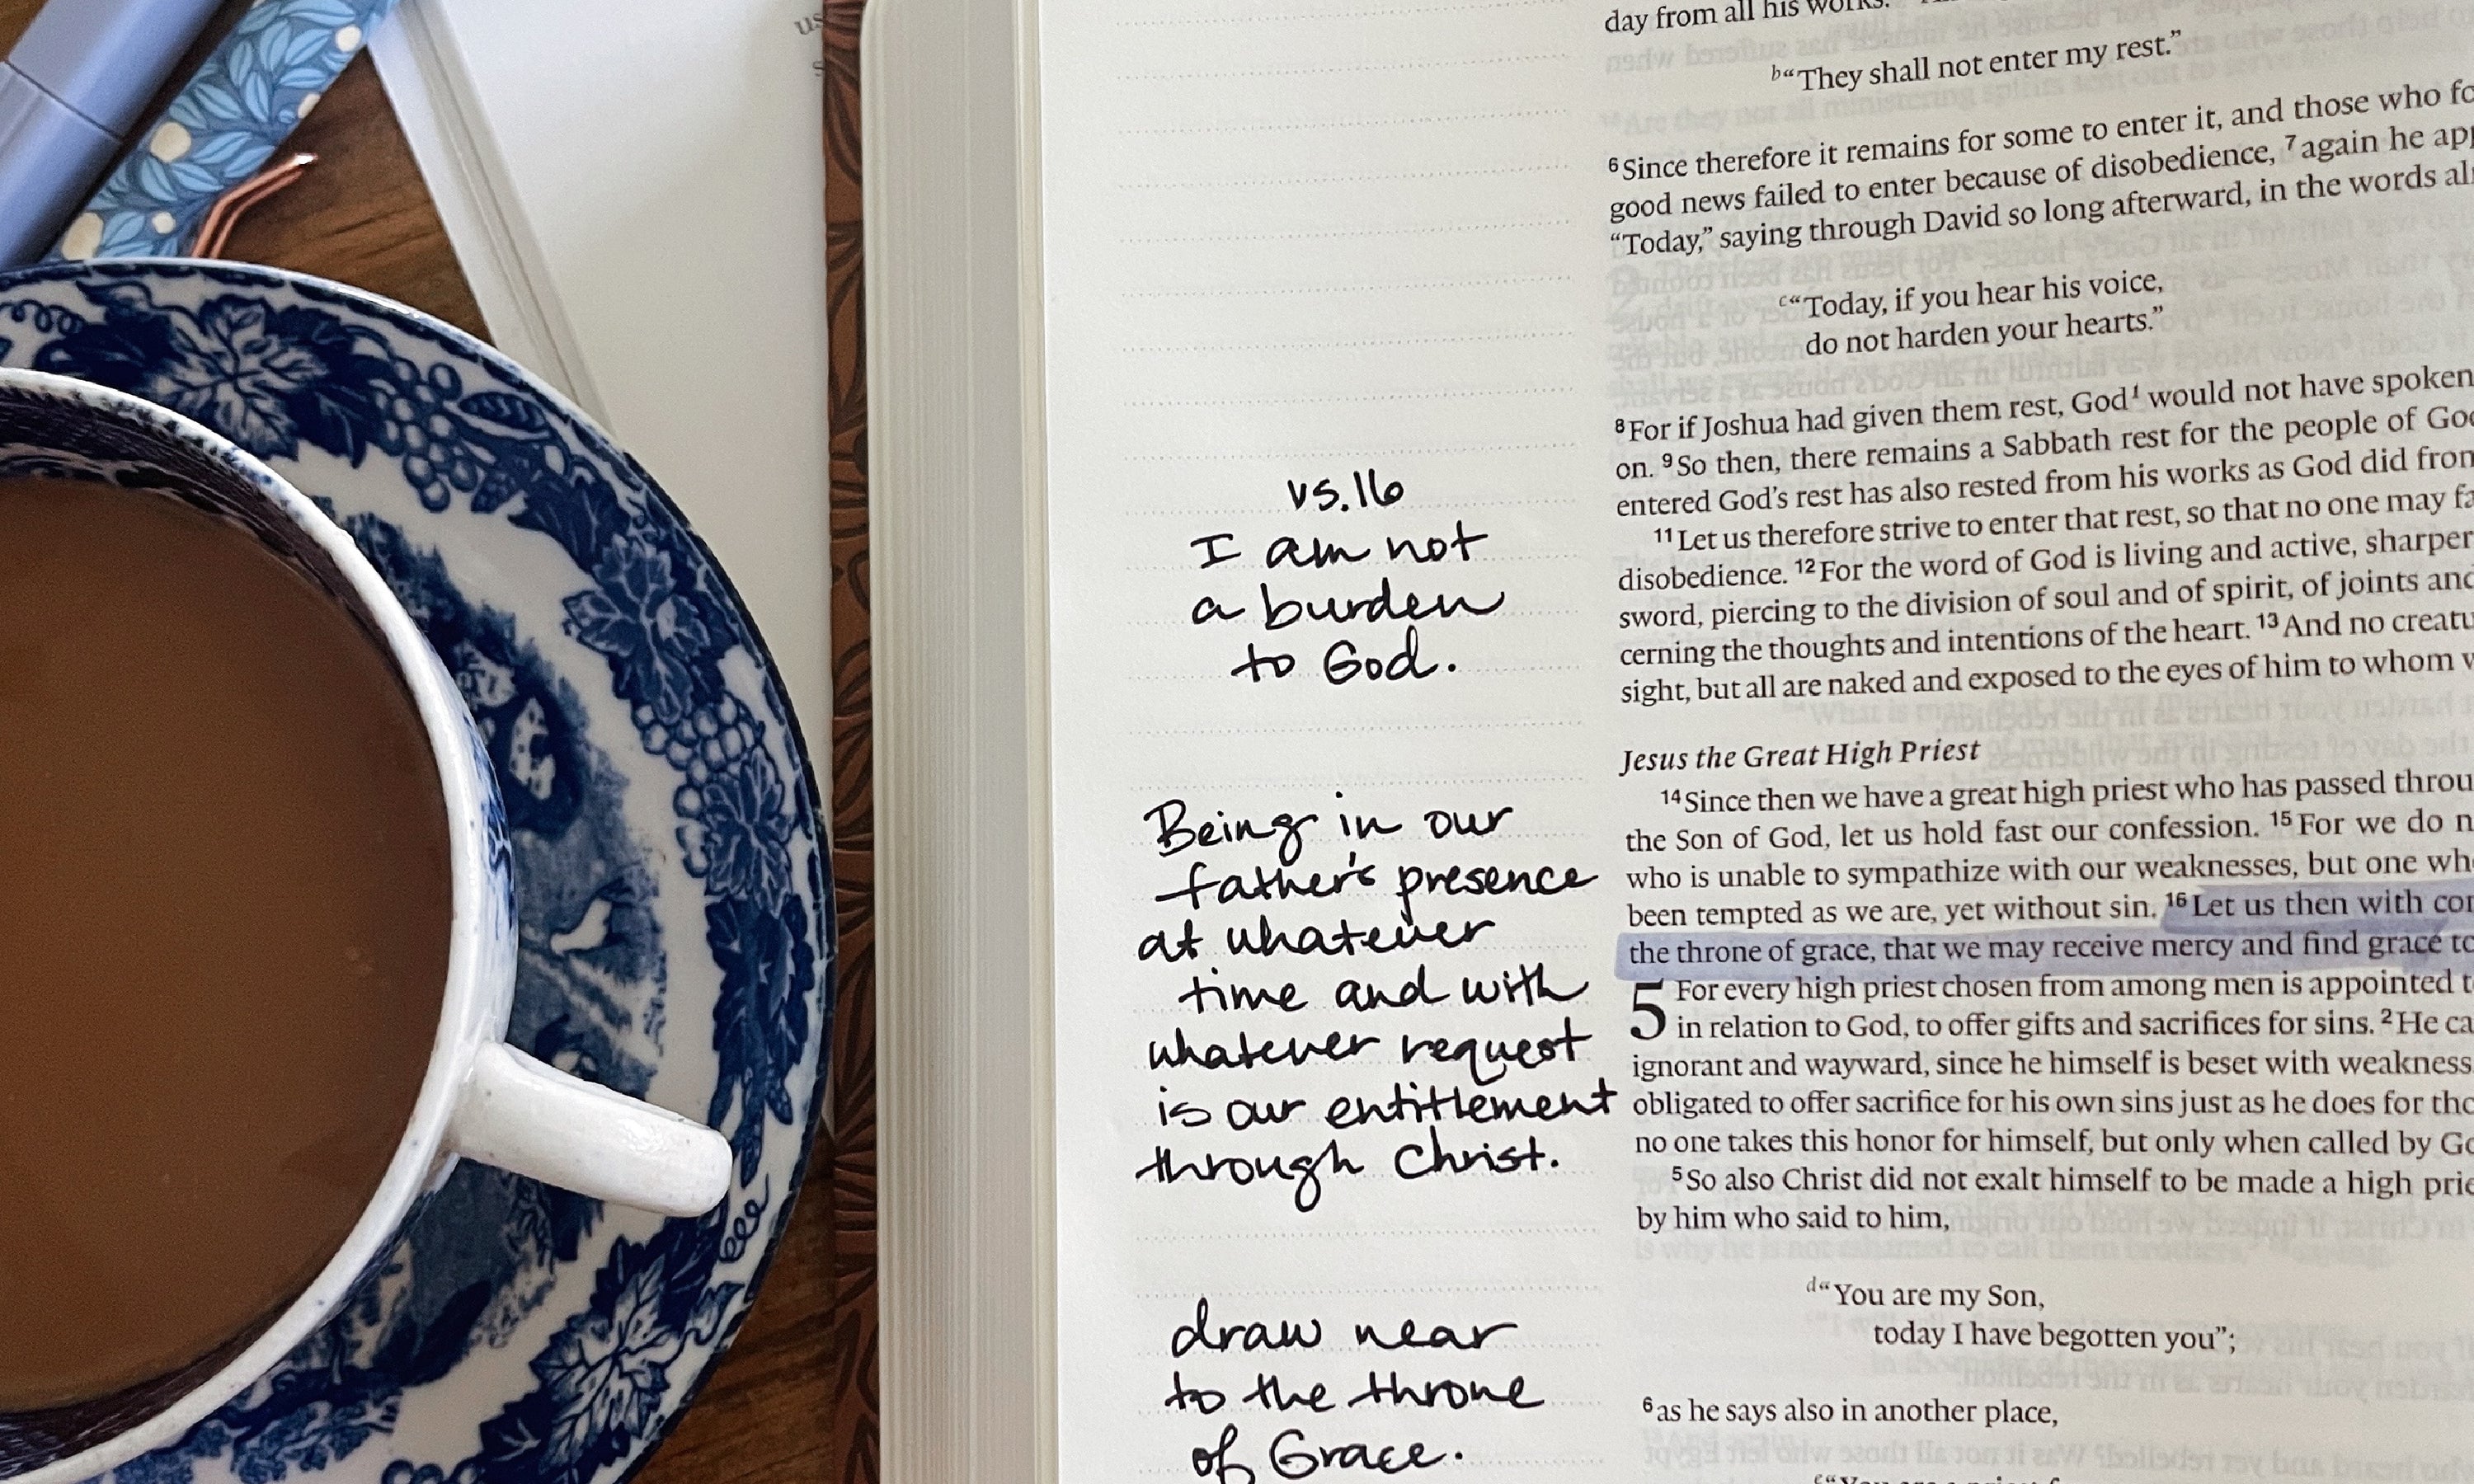 us
s
vs.16
I am not
a burden
to God.
Being in our
father's presence
at whatever
time and with
whatever request
is our entitlement
through Christ.
draw near
to the throne
of Grace.
day from all his works."
b“They shall not enter my rest.”
6 Since therefore it remains for some to enter it, and those who
good news failed to enter because of disobedience, 7 again he
“Today,” saying through David so long afterward, in the words
c“Today, if you hear his voice,
do not harden your hearts.”
8 For if Joshua had given them rest, God1 would not have spoken
on. 9 So then, there remains a Sabbath rest for the people of
entered God's rest has also rested from his works as God did
11 Let us therefore strive to enter that rest, so that no one may
disobedience. 12 For the word of God is living and active, sharper
sword, piercing to the division of soul and of spirit, of joints
cerning the thoughts and intentions of the heart. 13 And no
sight, but all are naked and exposed to the eyes of him to whom
Jesus the Great High Priest
14 Since then we have a great high priest who has passed
the Son of God, let us hold fast our confession. 15 For we do
who is unable to sympathize with our weaknesses, but one
been tempted as we are, yet without sin. 16 Let us then with
the throne of grace, that we may receive mercy and find grace
5 For every high priest chosen from among men is appointed
in relation to God, to offer gifts and sacrifices for sins. 2 He
ignorant and wayward, since he himself is beset with weakness
obligated to offer sacrifice for his own sins just as he does for
no one takes this honor for himself, but only when called by
5 So also Christ did not exalt himself to be made a high
by him who said to him,
d“You are my Son,
today I have begotten you”;
6 as he says also in another place,